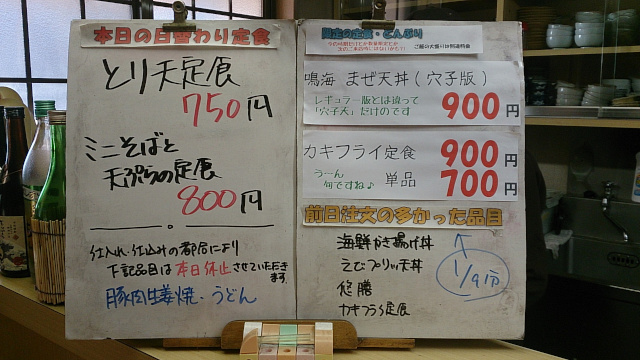 本日の日替わり定食
とり天定食
750円
ミニそばと
天ぷらの定食
800円
仕入れ、仕込みの都合により
下記品目は本日休止させていただき
ます
豚肉生姜焼・うどん
限定の定食・どんぶり
ご飯の大盛りは別途料金
鳴海 まぜ天丼(穴子版)
レギュラー版とは違って
「穴子天」だけのです
900円
カキフライ定食 900円
うーん
旬ですね♪
単品 700円
前日注文の多かった品目
海鮮かき揚げ丼
えびプリッ天丼
悠膳
カキフライ定食
1/9分